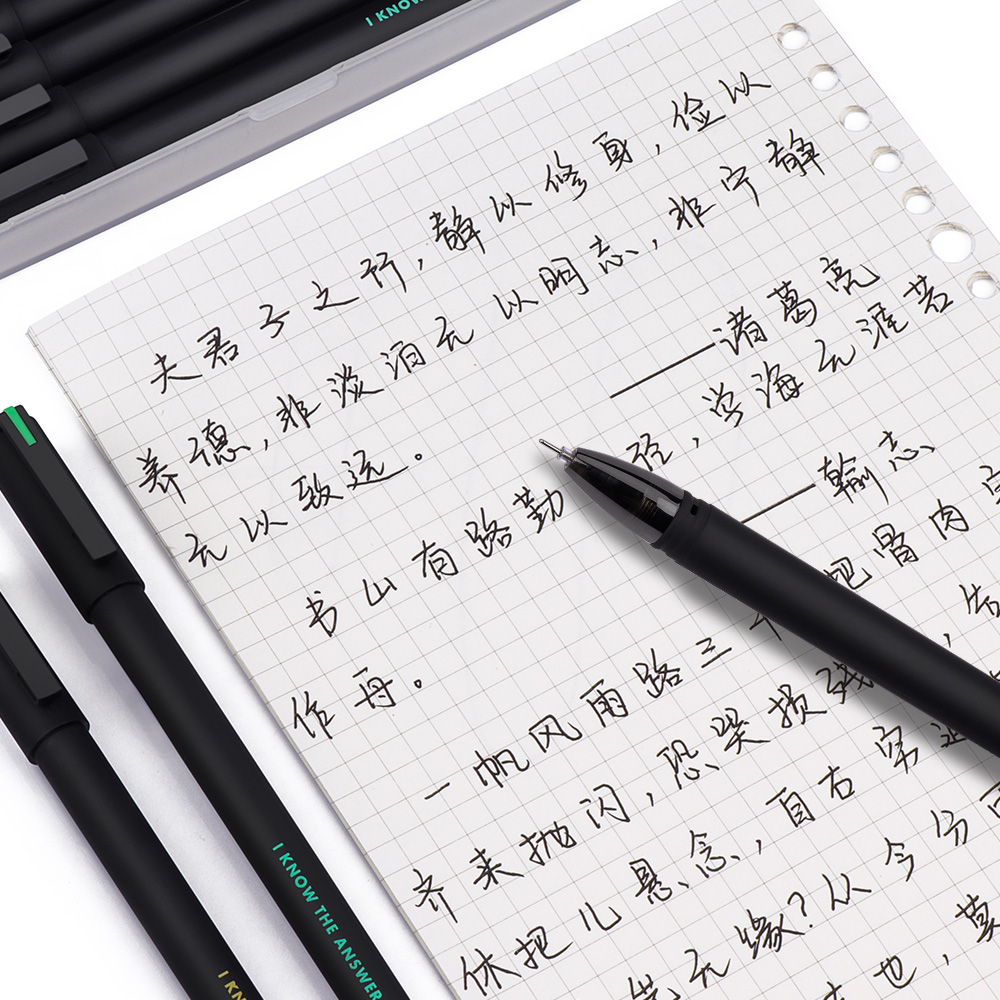 I KNOW
夫君子之行,静以修身,俭以
养德,非淡泊无以明志,非宁静
无以致远。
——诸葛亮
书山有路勤 径,学海无涯苦
作舟。
——
一帆风雨路三 把骨肉
齐来抛闪,恐哭损残 告
休把儿悬念,自古穷
无缘?从今分
也,莫
I KNOW THE ANSWER
I KN